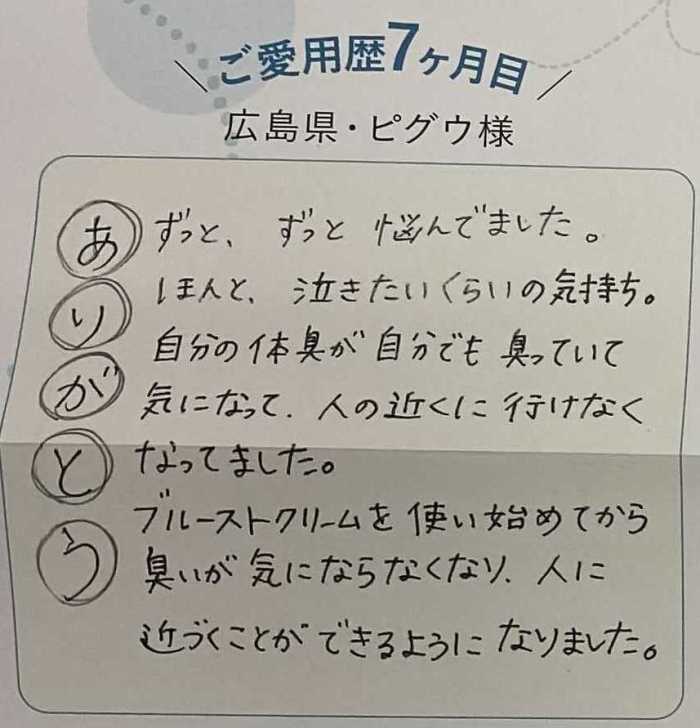 ご愛用歴7ヶ月目
広島県・ピグウ様
ありがとう
ずっと、ずっと 悩んでました。
ほんと、泣きたいくらいの気持ち。
自分の体臭が自分でも臭っていて
気になって、人の近くに行けなく
なってました。
ブルーストクリームを使い始めてから
臭いが気にならなくなり、人に
近づくことができるようになりました。